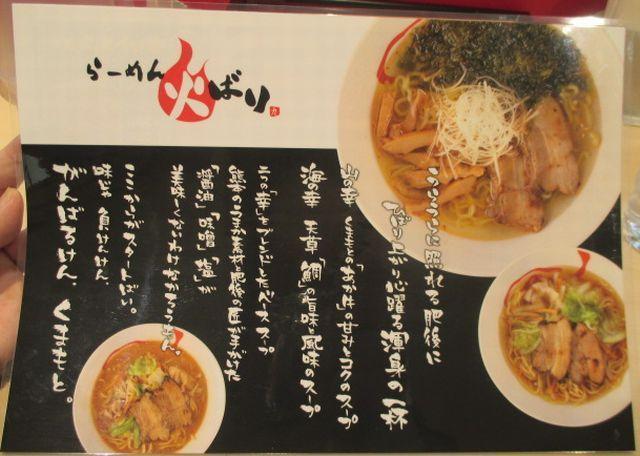 らーめん 火ばり
うららうらに 照れる 肥後に
ひばり 上がり 心躍る 渾身の一杯
山の幸 くまもと「あか牛」の甘みとコクのスープ
海の幸 天草「鯛」の旨味風味のスープ
二つの「幸」をブレンドしたベーススープ
熊本のうまか素材 肥後の匠が手がけた
「醤油」「味噌」「塩」が
美味しくないわけなかろうもん。
ここからがスタートばい。
味じゃ負けんけん、
がんばるけん、くまもと。